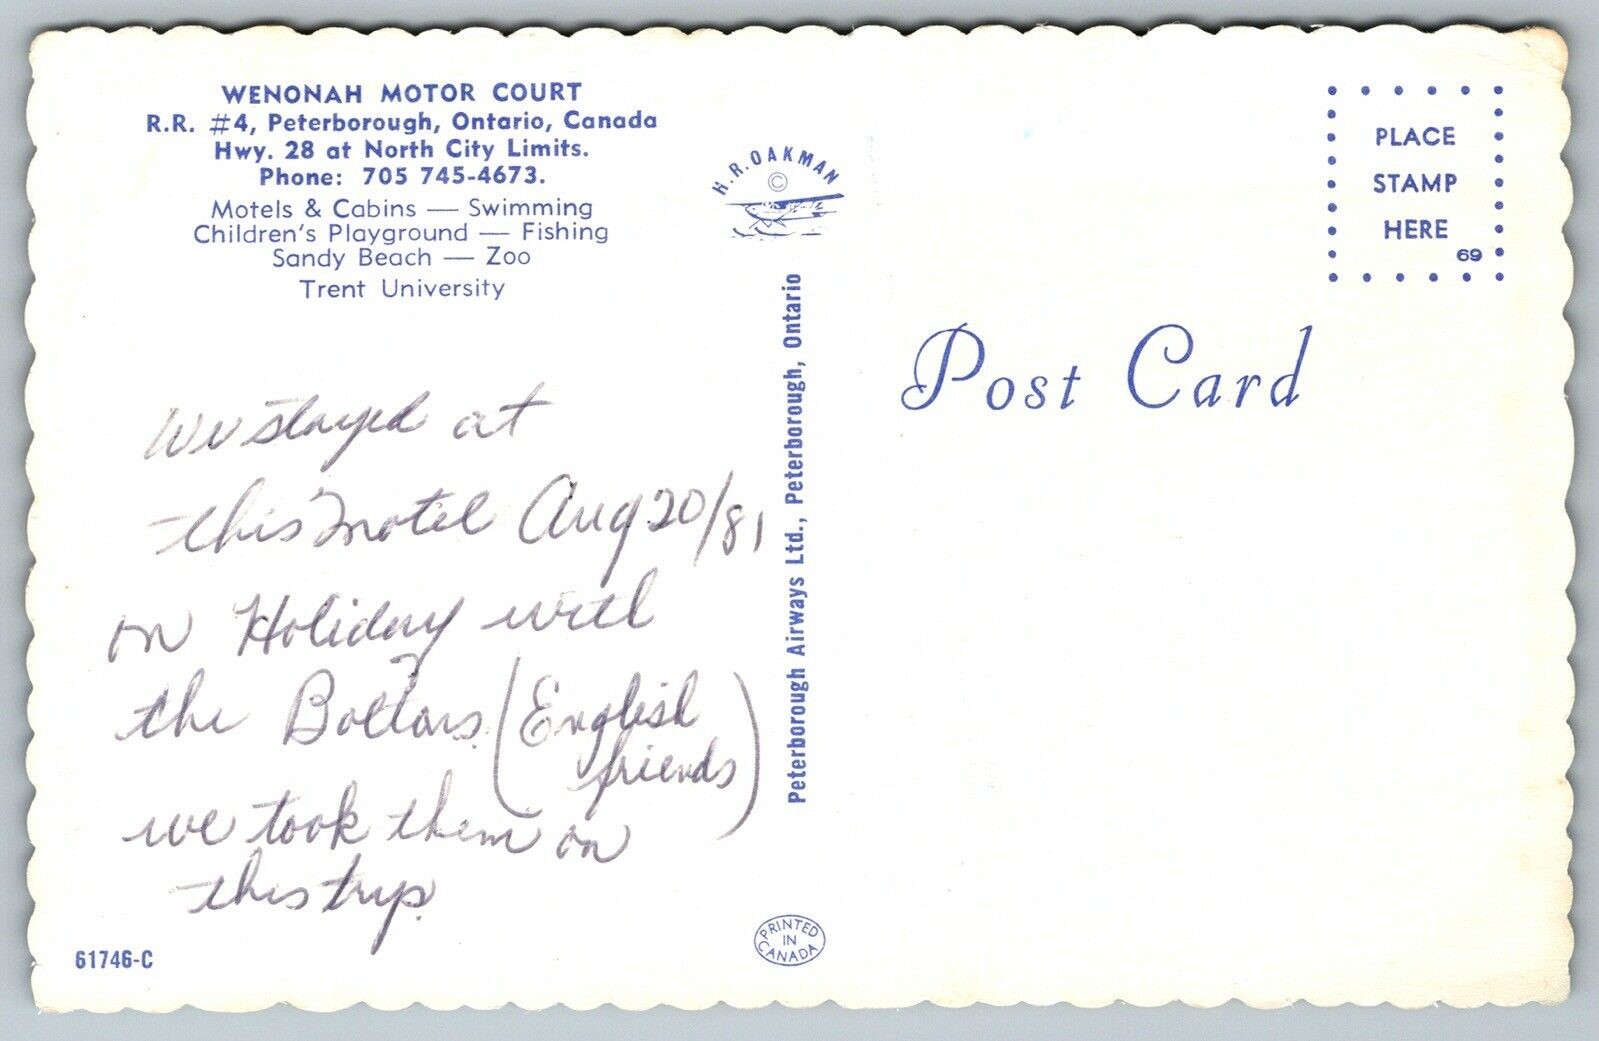 WENONAH MOTOR COURT
R.R. #4, Peterborough, Ontario, Canada
Hwy. 28 at North City Limits.
Phone: 705 745-4673.
Motels & Cabins — Swimming
Children's Playground — Fishing
Sandy Beach — Zoo
Trent University
We stayed at
this motel Aug 20/81
on Holiday with
the (English
friends)
we took them on
this trip.
61746-C
H.R. OAKMAN
©
Peterborough Airways Ltd., Peterborough, Ontario
PRINTED
IN
CANADA
PLACE
STAMP
HERE
69
Post Card